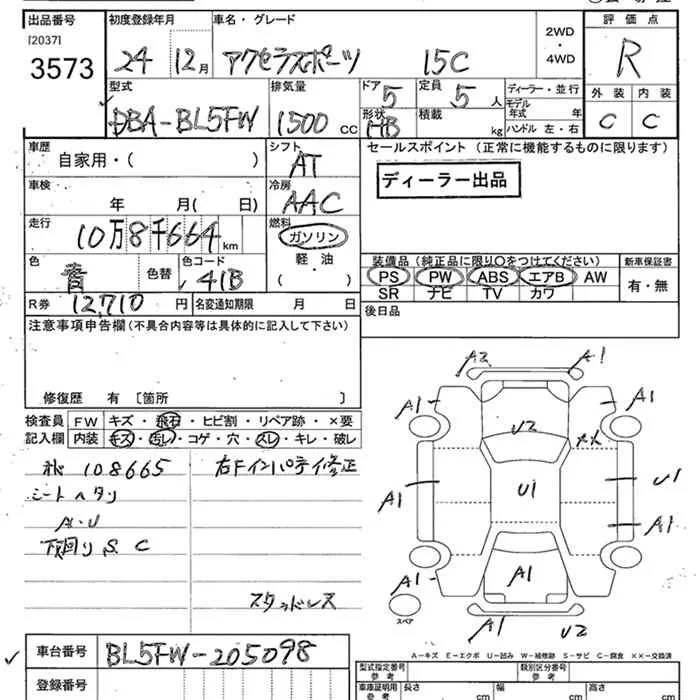 出品番号 初度登録年月 車名・グレード 評価点
[2037]
3573 24 12月 アクセラスポーツ 15C 2WD・4WD R
型式 排気量 ドア 定員 ディーラー・並行 外装 内装
DBA-BL5FW 1500 CC 5 5 人 モデル年式 年 C C
形状 HB 積載 kg ハンドル 左・右
車歴 シフト セールスポイント (正常に機能するものに限ります)
自家用・( ) AT
ディーラー出品
車検 冷房
年 月( 日) AAC
走行 燃料
10万8千664 km ガソリン
色 色コード 軽・油 装備品 (純正品に限り○をつけてください) 新車保証書
青 色替 41B ( ) PS PW ABS エアB AW 有・無
SR ナビ TV カワ
R券 12,710 円 名変通知期限 月 日 後日品
注意事項申告欄(不具合内容等は具体的に記入して下さい)
修復歴 有 〔箇所 〕
検査員 FW キズ・飛石・ヒビ割・リペア跡・×要
記入欄 内装 キズ・汚レ・コゲ・穴・スレ・キレ・破レ
108665 右Fインパテイ修正
シートヘタリ
A・U
下回り S C
スタッドレス
A2 A1
A1 A1
U2
U1
A1 U1
A1
A1 A1
スペア
A1 U2
A-キズ E-エクボ U-凹み W-補修跡 S-サビ C-腐食 ××-交換済
車台番号 BL5FW-205098
登録番号
型式指定番号 参考 類別区分番号 参考
車庫証明用 参考 長さ cm 幅 cm 高さ cm